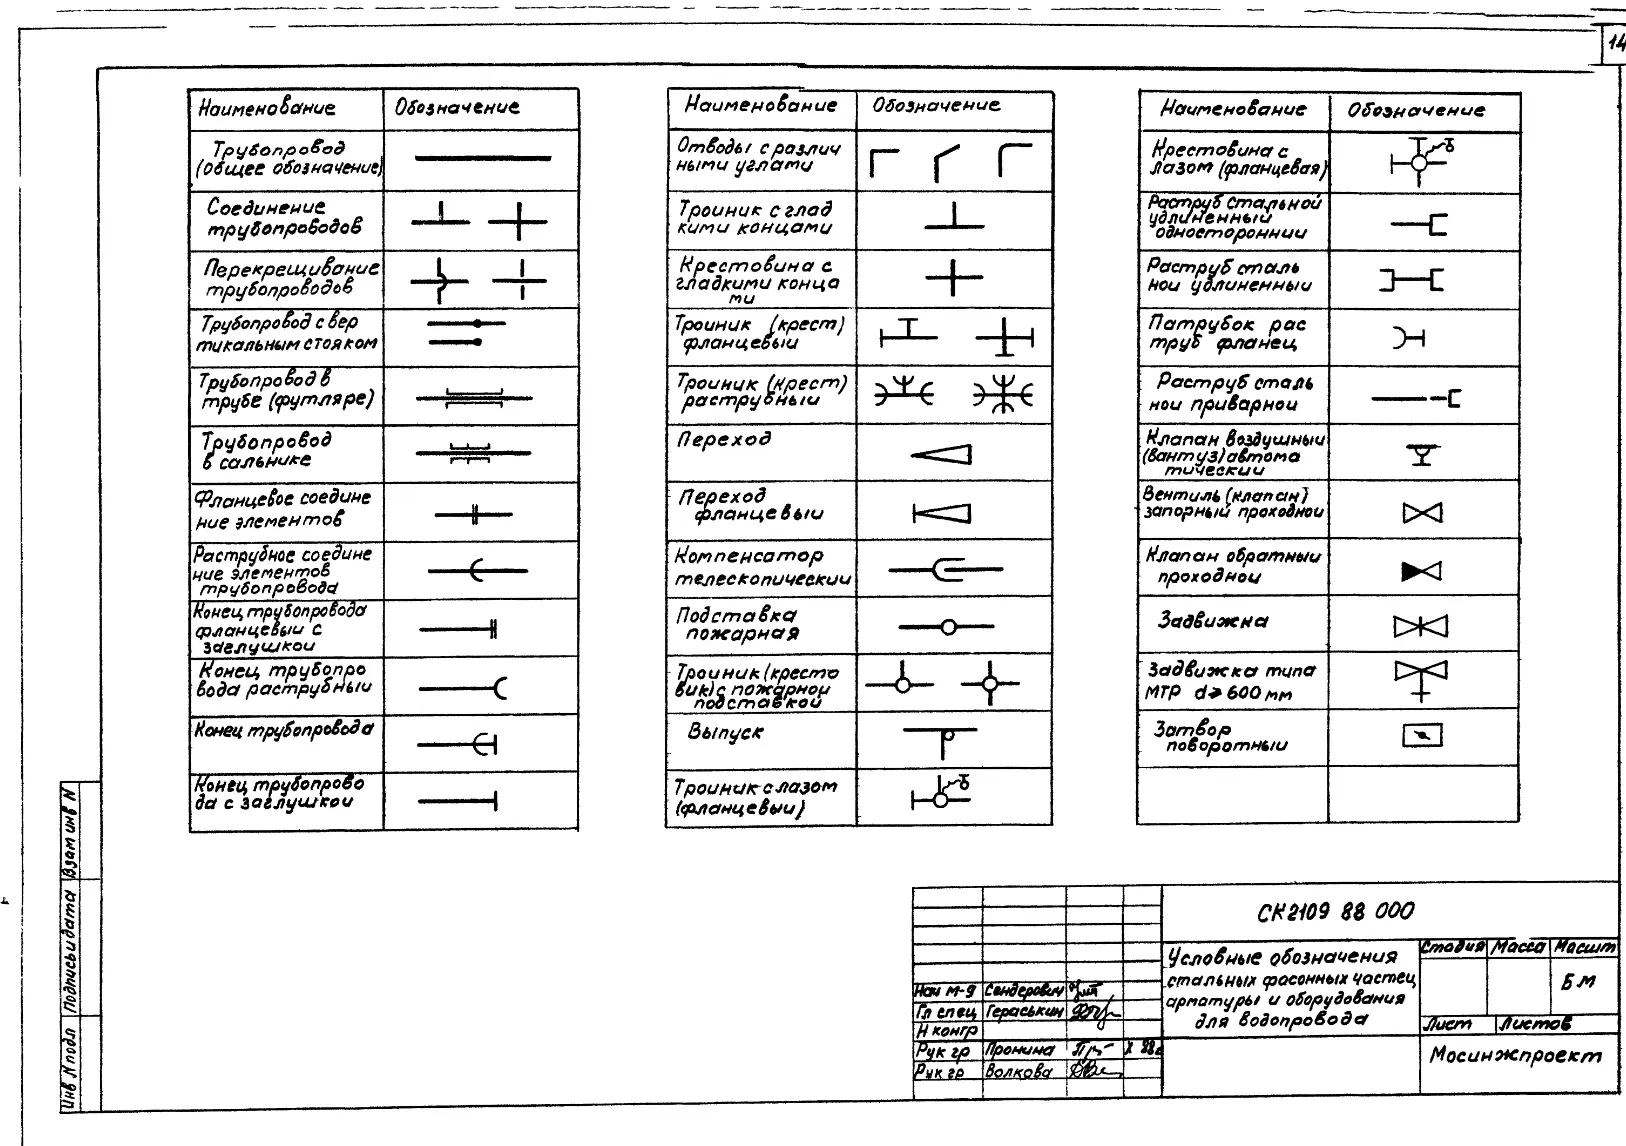 14
Наименование Обозначение
Трубопровод
(общее обозначение)
Соединение
трубопроводов
Перекрещивание
трубопроводов
Трубопровод с вер
тикальным стояком
Трубопровод в
трубе (футляре)
Трубопровод
в сальнике
Фланцевое соедине
ние элементов
Раструбное соедине
ние элементов
трубопровода
Конец трубопровода
фланцевыи с
заглушкои
Конец трубопро
вода раструбныи
Конец трубопровода
Конец трубопрово
да с заглушкои
Наименование Обозначение
Отводы с различ
ными углами
Троиник с глад
кими концами
Крестовина с
гладкими конца
ми
Троиник (крест)
фланцевыи
Троиник (крест)
раструбныи
Переход
Переход
фланцевыи
Компенсатор
телескопическии
Подставка
пожарная
Троиник (кресто
вик) с пожарнои
подставкои
Выпуск
Троиник с лазом
(фланцевыи)
Наименование Обозначение
Крестовина с
лазом (фланцевая)
Раструб стальнои
удлиненныи
одностороннии
Раструб сталь
нои удлиненныи
Патрубок рас
труб фланец
Раструб сталь
нои приварнои
Клапан воздушныи
(вантуз) автома
тическии
Вентиль (клапан)
запорныи проходнои
Клапан обратныи
проходнои
Задвижка
Задвижка типа
МТР d⩾600 мм
Затвор
поворотныи
СК2109 88 000
Условные обозначения
стальных фасонных частец
арматуры и оборудования
для водопровода
Стадия Масса Масшт
БМ
Лист Листов
Мосинжпроект
Нач м-9 Сендерович
Гл спец Гераськин
Н контр
Рук гр Пронина X 88г
Рук гр Волкова
Взам инв N
Подпись и дата
Инв N подл